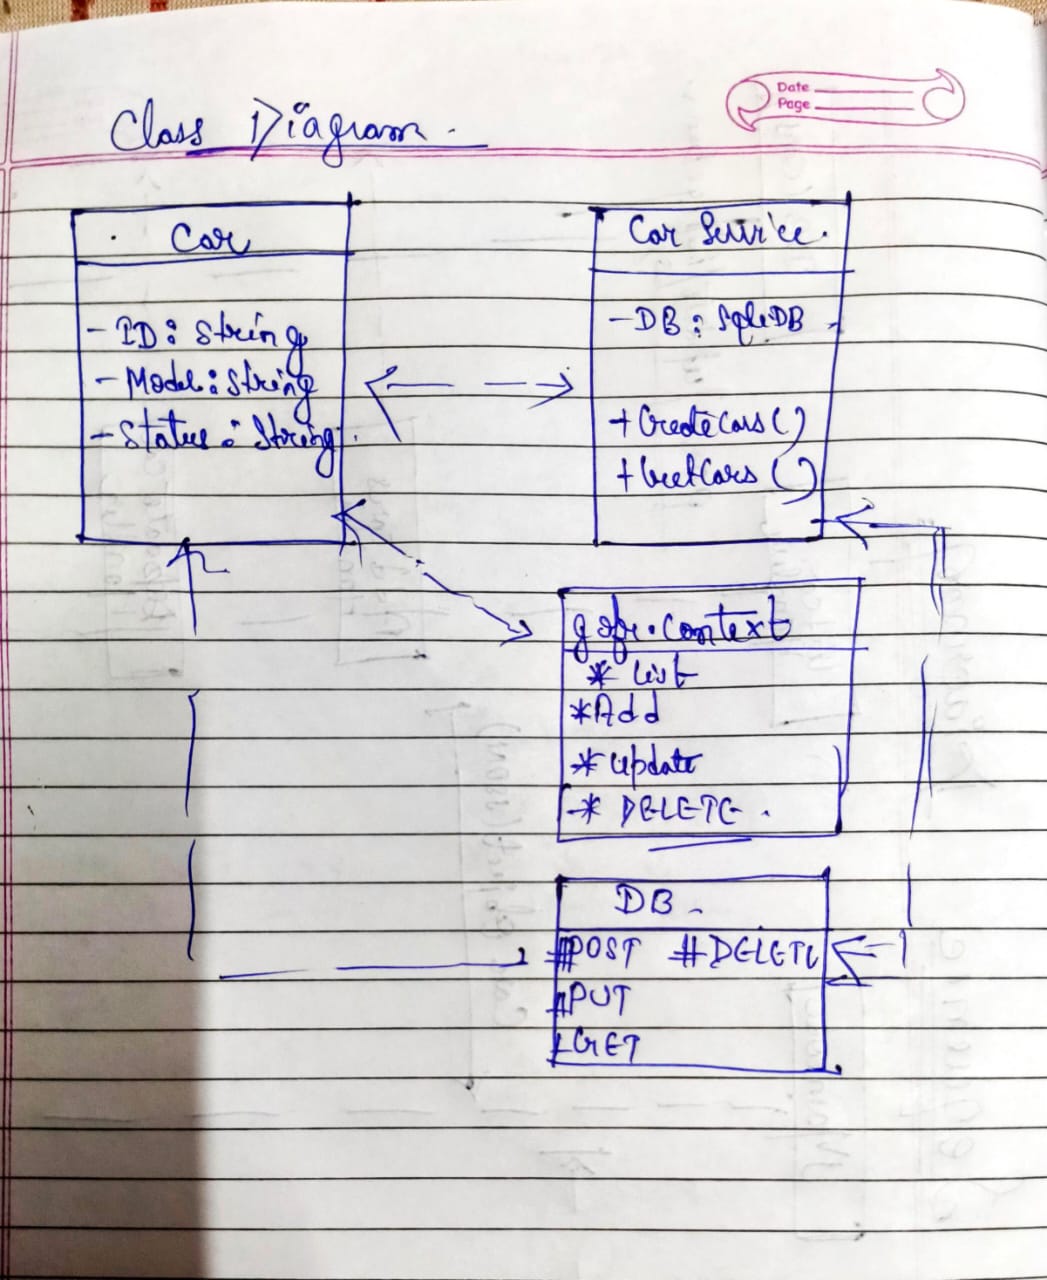 Date
Page
Class Diagram.
Car
- ID: String
- Model: String
- Status: String.
Car Service.
- DB:
+ CreateCars()
+ GetCars ()
gofr.context
* List
* Add
* Update
* DELETE.
DB
#POST #DELETE
#PUT
GET